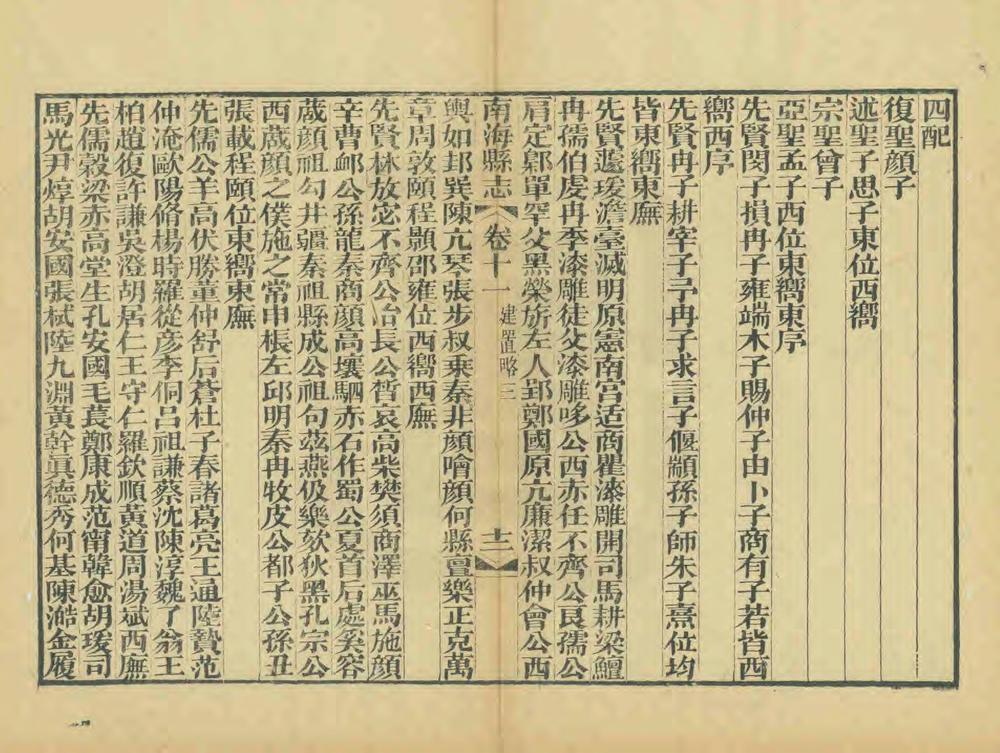 四配
復聖顔子
述聖子思子東位西嚮
宗聖曾子
亞聖孟子西位東嚮東序
先賢閔子損冉子雍端木子賜仲子由卜子商有子若皆西
嚮西序
先賢冉子耕宰子予冉子求言子偃顓孫子師朱子熹位均
皆東嚮東廡
先賢蘧瑗澹臺滅明原憲南宮适商瞿漆雕開司馬耕梁鱣
冉孺伯虔冉季漆雕徒父漆雕哆公西赤任不齊公良孺公
肩定鄡單罕父黑榮旂左人郢鄭國原亢廉潔叔仲會公西
輿如邽巽陳亢琴張步叔乗秦非顔噲顔何縣亶樂正克萬
章周敦頤程顥邵雍位西嚮西廡
先賢林放宓不齊公冶長公晳哀高柴樊須商澤巫馬施顔
辛曹䘏公孫龍秦商顔高壤駟赤石作蜀公夏首后處奚容
蒧顔祖勾井疆秦祖縣成公祖句茲燕伋樂欬狄黑孔宗公
西蒧顔之僕施之常申棖左邱明秦冉牧皮公都子公孫丑
張載程頤位東嚮東廡
先儒公羊高伏勝董仲舒后蒼杜子春諸葛亮王通陸贄范
仲淹歐陽脩楊時羅從彥李侗呂祖謙蔡沈陳淳魏了翁王
柏趙復許謙吳澄胡居仁王守仁羅欽順黃道周湯斌西廡
先儒穀梁赤高堂生孔安國毛萇鄭康成范甯韓愈胡瑗司
馬光尹焞胡安國張栻陸九淵黃幹真德秀何基陳澔金履
南海縣志
卷十一
建置略三
十二